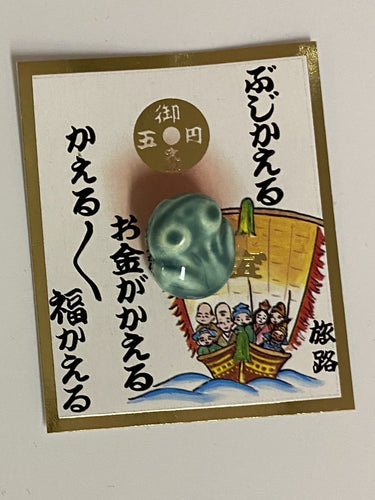 ぶじかえる
旅路
御
五円
お金がかえる
かえる〱
福かえる